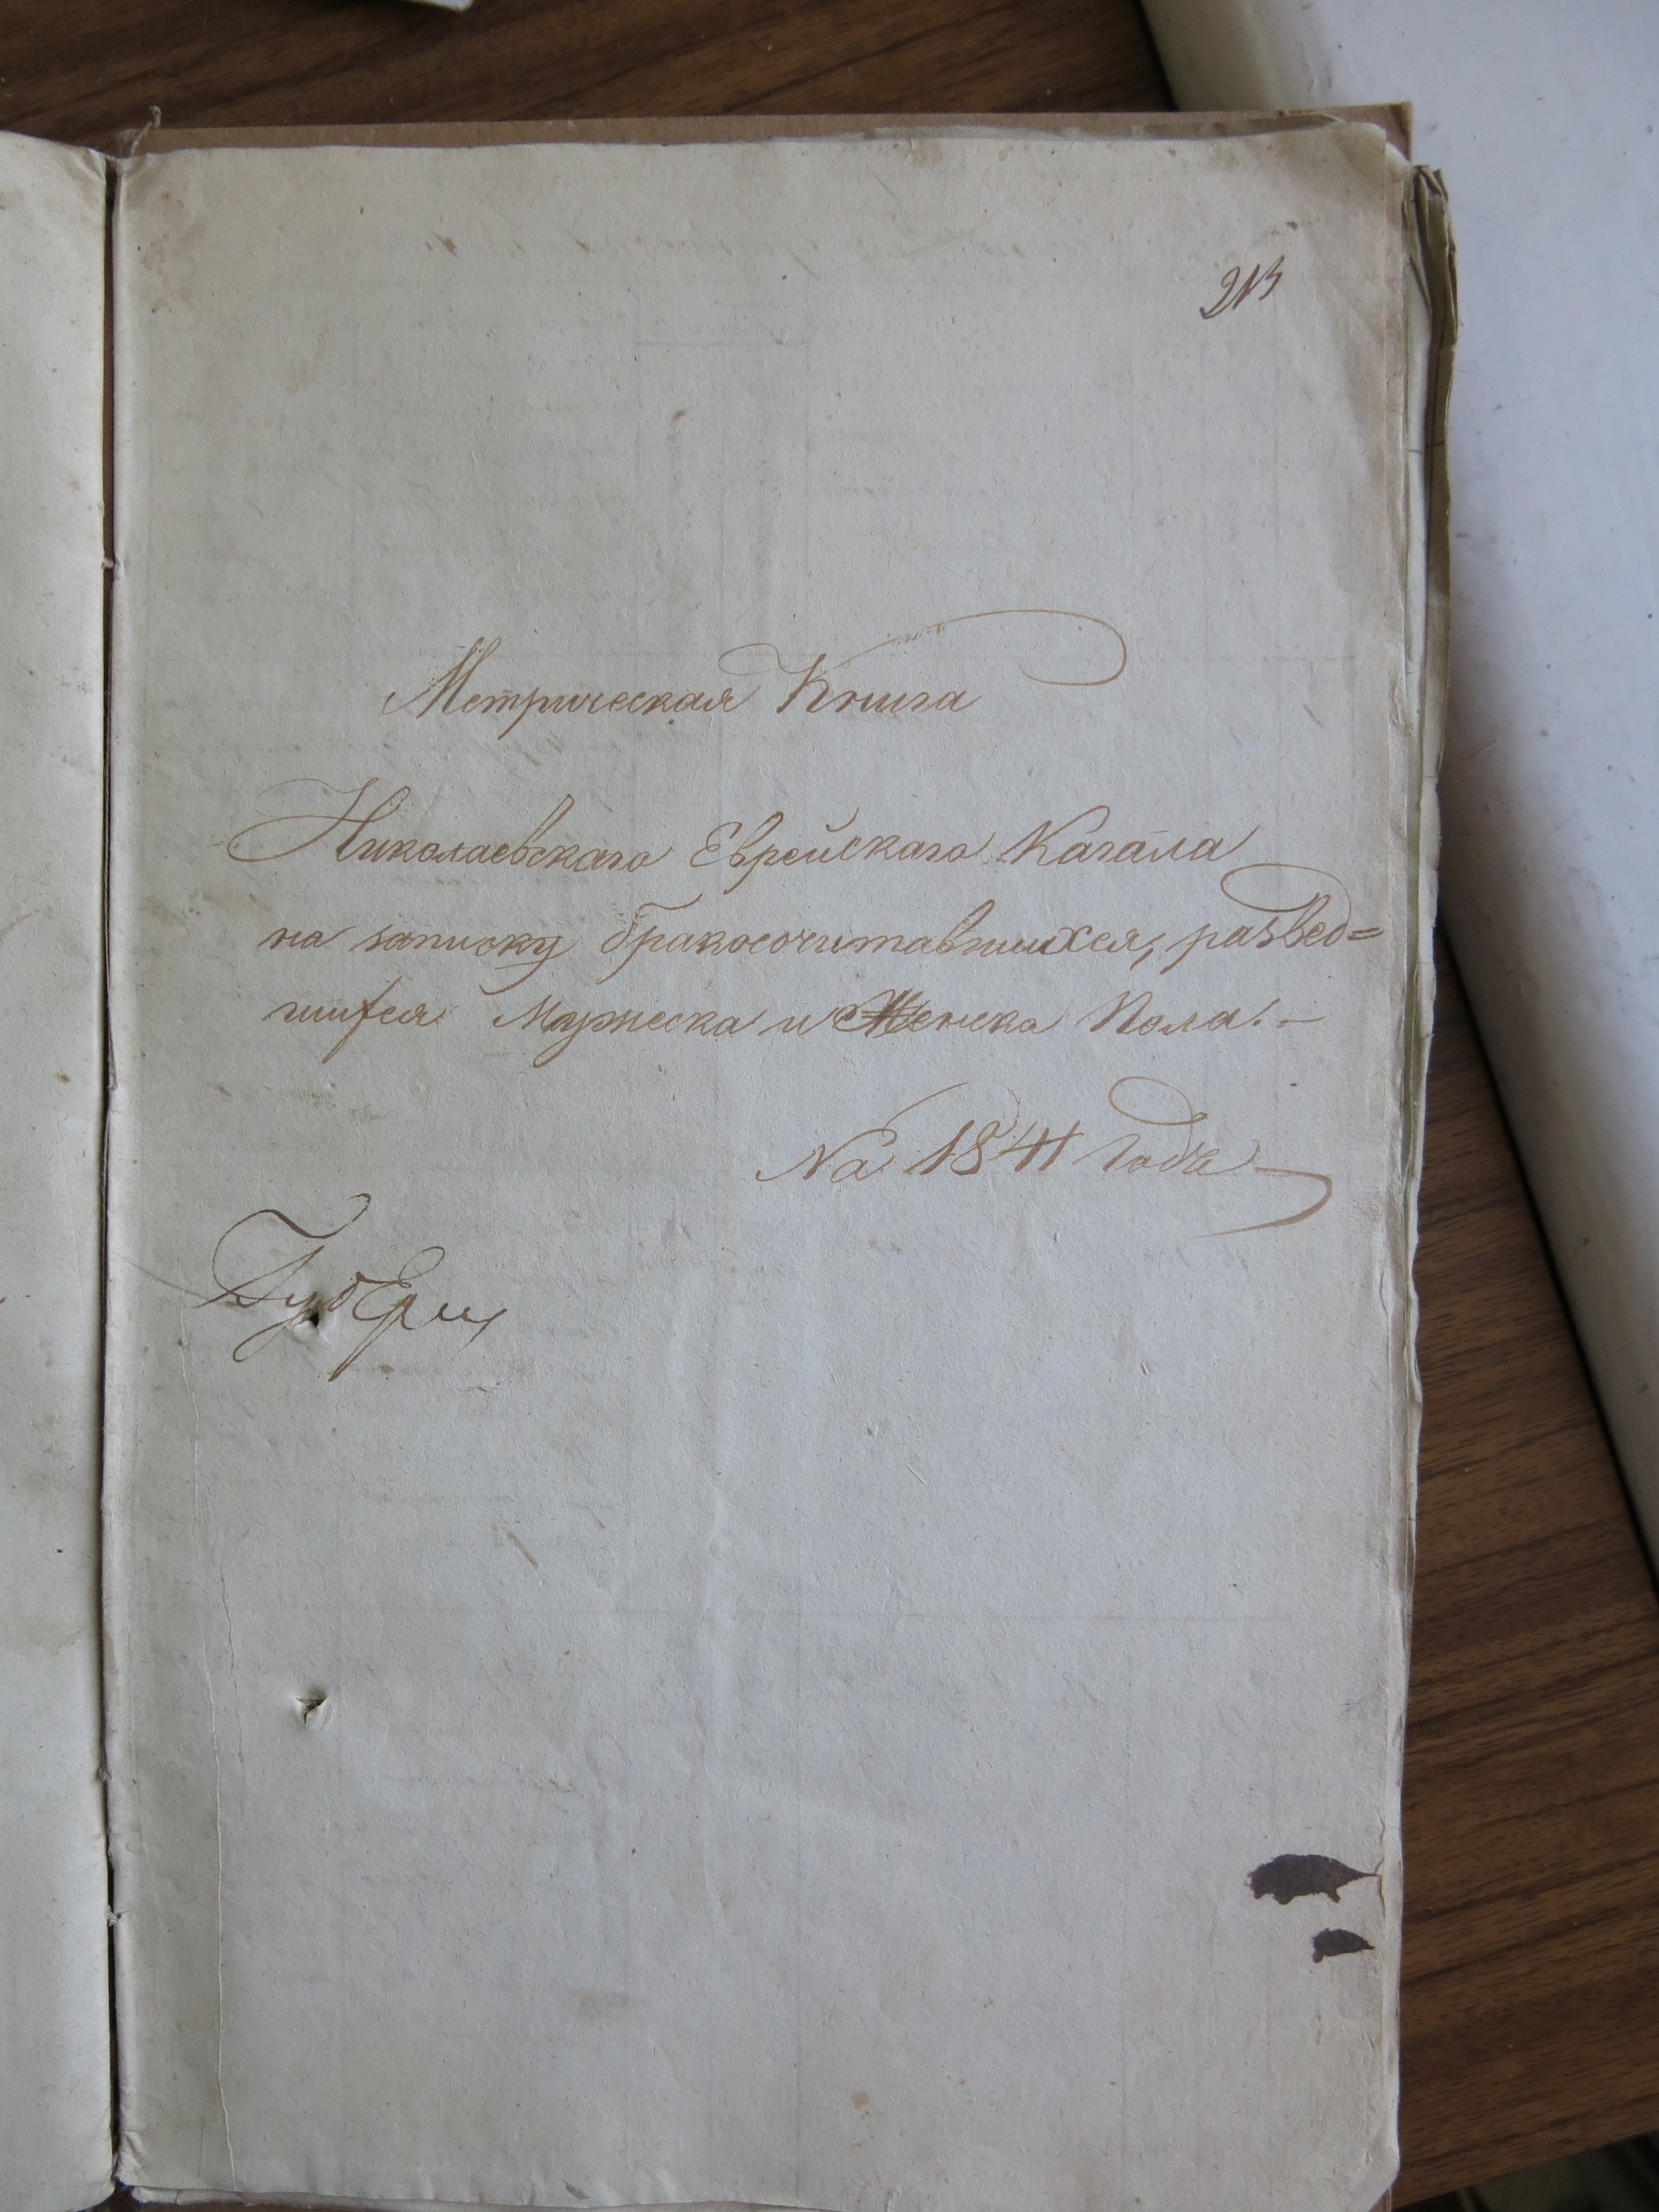 213
Метрическая Книга
Николаевскаго Еврейскаго Кагала
на записку бракосочитавшихся, развед=
шихся Мужеска и Женска Пола. —
На 1841 Года